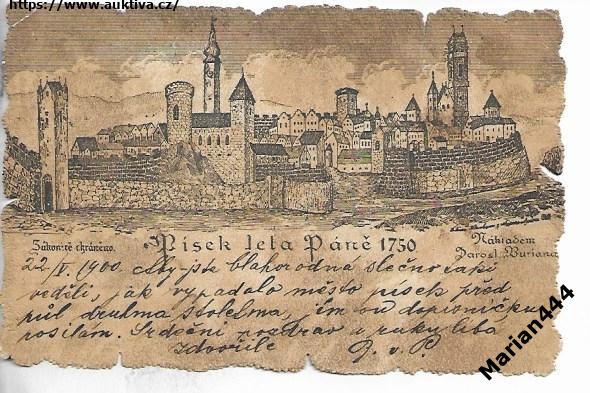 https://www.auktiva.cz/
Zákonitě chráněno. Písek leta Páně 1750 Nákladem
Jarosl. Buriana
22/V. 1900. Aby-jste blahorodná slečno také
věděli, jak vypadalo město písek před
půl druhma stoletma, im ou dopisničku
posílám. Srdečni pozdrav a ruku líbá
zdvořile
Marian444